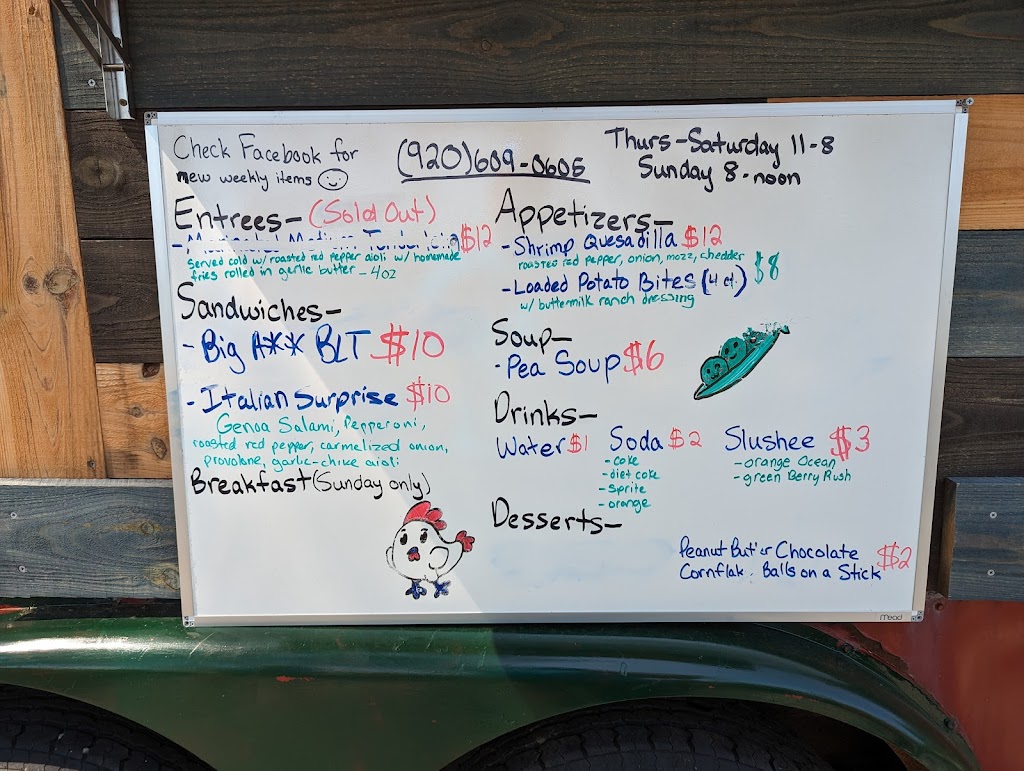 Check Facebook for
new weekly items
(920)609-0605
Thurs-Saturday 11-8
Sunday 8-noon
Entrees- (Sold Out)
$12
served cold w/ roasted red pepper aioli w/ homemade
fries rolled in garlic butter - 4oz
Sandwiches-
- Big A** BLT $10
- Italian Surprise $10
Genoa Salami, Pepperoni,
roasted red pepper, carmelized onion,
provolone, garlic-chive aioli
Breakfast (Sunday only)
Appetizers-
- Shrimp Quesadilla $12
roasted red pepper, onion, mozz, chedder
- Loaded Potato Bites (4 ct.) $8
w/ buttermilk ranch dressing
Soup-
- Pea Soup $6
Drinks-
Water $1
Soda $2
- coke
- diet coke
- sprite
- orange
Slushee $3
- orange Ocean
- green Berry Rush
Desserts-
Peanut But'er Chocolate
Cornflak. Balls on a Stick $2
Mead